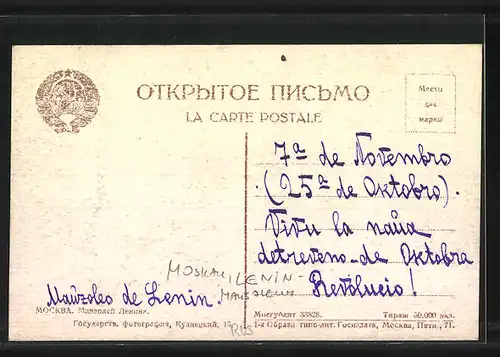 ОТКРЫТОЕ ПИСЬМО
LA CARTE POSTALE
Место
для
марки
7ª de Novembro
(25ª de Oktobro).
Vivu la naŭa
datreveno de Oktobra
Revolucio!
MOSKAU, LENIN-
MAUSOLEUM
Maŭzoleo de Lenin.
МОСКВА. Мавзолей Ленина.
Государств. фотография, Кузнецкий, 16
RUS
Мосгублит 33828. Тираж 50.000 экз.
1-я Образц. типолит. Госиздата, Москва, Пятн., 71.